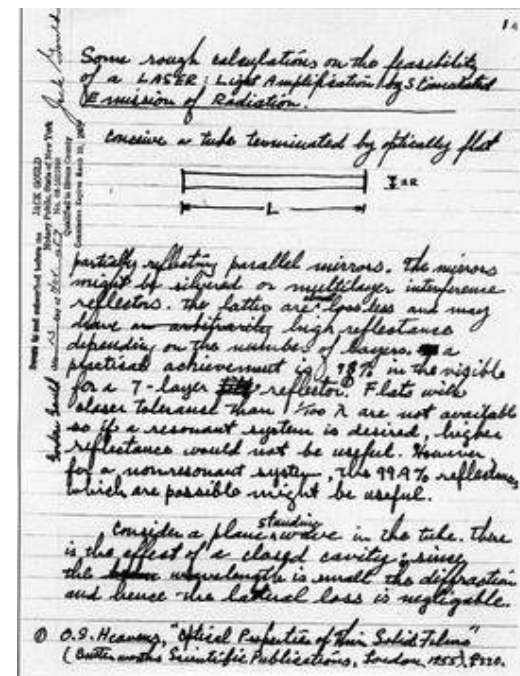 1
Some rough calculations on the feasibility
of a LASER: Light Amplification by Stimulated
Emission of Radiation.
conceive a tube terminated by optically flat
L
partially reflecting parallel mirrors. The mirrors
might be silvered or multilayer interference
reflectors. The latter are lossless and may
have an arbitrarily high reflectance
depending on the number of layers. a
practical achievement is 98% in the visible
for a 7-layer reflector. Flats with
closer tolerance than 1/100 λ are not available
so if a resonant system is desired, higher
reflectance would not be useful. However,
for a nonresonant system, the 99.9% reflectances
which are possible might be useful.
Consider a plane standing wave in the tube. There
is the effect of a closed cavity; since
the wavelength is small the diffraction
and hence the lateral loss is negligable.
① O.S. Heavens, "Optical Properties of Thin Solid Films"
(Butterworths Scientific Publications, London, 1955), p220.
JACK GOULD
Notary Public, State of New York
Qualified in Bronx County
Commission Expires March 30,
Sworn to and subscribed before me
Jack Gould
Gordon Gould